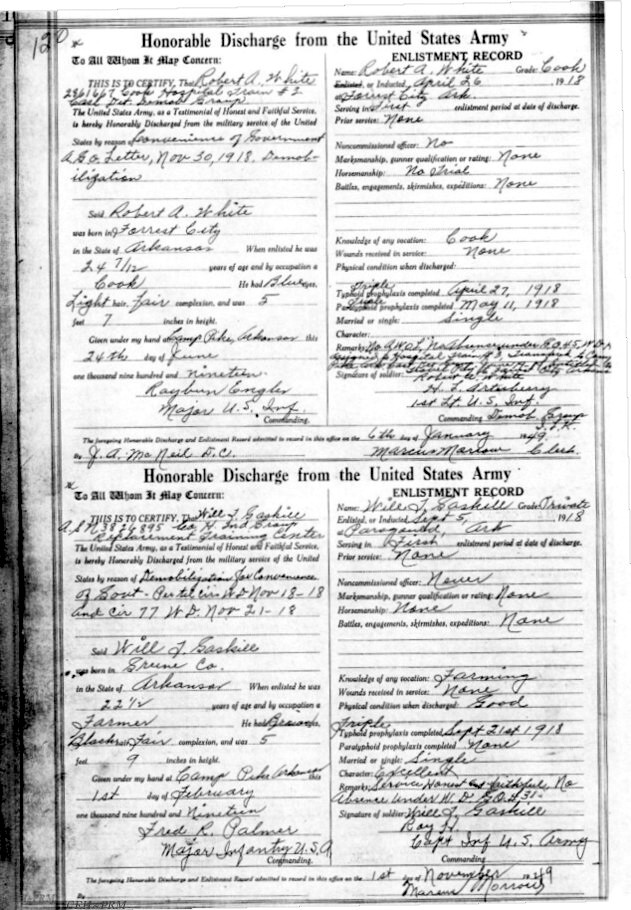 120
Honorable Discharge from the United States Army
To All Whom It May Concern:
THIS IS TO CERTIFY, That Robert A. White
2861667 Cook Hospital Train # 2
Cas'l Det. Demob Group
The United States Army, as a Testimonial of Honest and Faithful Service,
is hereby Honorably Discharged from the military service of the United
States by reason of Convenience of Government
A.G.O. Letter, Nov 30, 1918. Demob-
ilization
Said Robert A. White
was born in Forrest City
in the State of Arkansas When enlisted he was
24 7/12 years of age and by occupation a
Cook He had Blue eyes,
Light hair, fair complexion, and was 5
feet 7 inches in height.
Given under my hand at Camp Pike, Arkansas this
24th day of June
one thousand nine hundred and nineteen
Rayburn Engler
Major U.S. Inf.
Commanding.
ENLISTMENT RECORD
Name: Robert A. White Grade: Cook
Enlisted, or Inducted April 26 1918
Forrest City Ark.
Serving in First enlistment period at date of discharge.
Prior service: None
Noncommissioned officer: No
Marksmanship, gunner qualification or rating: None
Horsemanship: No Trial
Battles, engagements, skirmishes, expeditions: None
Knowledge of any vocation: Cook
Wounds received in service: None
Physical condition when discharged:
Triple
Typhoid prophylaxis completed April 27, 1918
Paratyphoid prophylaxis completed May 11, 1918
Married or single: Single
Character:
Remarks: No A.W.O.L. under G.O. 45, W.D.
Signature of soldier: Robert A. White
1st Lt. U.S. Inf
Commanding Demob Group
The foregoing Honorable Discharge and Enlistment Record admitted to record in this office on the 6th day of January 1949
By J. A. McNeil D.C. Marcus Marlow Clerk
Honorable Discharge from the United States Army
To All Whom It May Concern:
THIS IS TO CERTIFY, That Will T. Gaskill
A.S.N 3826895 Co H. Ind Group
Replacement Training Center
The United States Army, as a Testimonial of Honest and Faithful Service,
is hereby Honorably Discharged from the military service of the United
States by reason of Demobilization for Convenience
of Govt - Per tel cir W.D. Nov 18-18
and cir 77 W.D. Nov 21-18
Said Will T. Gaskill
was born in Greene Co.
in the State of Arkansas When enlisted he was
22 1/2 years of age and by occupation a
Farmer He had Brown eyes,
Black hair Fair complexion, and was 5
feet 9 inches in height.
Given under my hand at Camp Pike Arkansas this
1st day of February
one thousand nine hundred and Nineteen
Fred R. Palmer
Major Infantry U.S.A
Commanding.
ENLISTMENT RECORD
Name: Will T. Gaskill Grade: Private
Enlisted, or Inducted Sept 5, 1918
Paragould, Ark
Serving in First enlistment period at date of discharge.
Prior service: None
Noncommissioned officer: Never
Marksmanship, gunner qualification or rating: None
Horsemanship: None
Battles, engagements, skirmishes, expeditions: None
Knowledge of any vocation: Farming
Wounds received in service: None
Physical condition when discharged: Good
Triple
Typhoid prophylaxis completed Sept 21st 1918
Paratyphoid prophylaxis completed None
Married or single: Single
Character: Excellent
Remarks: Service Honest and faithful No
Absence under W.D. G.O. 31-
Signature of soldier: Will T. Gaskill
Capt Inf U.S. Army
Commanding
The foregoing Honorable Discharge and Enlistment Record admitted to record in this office on the 1st day of November 1949
By